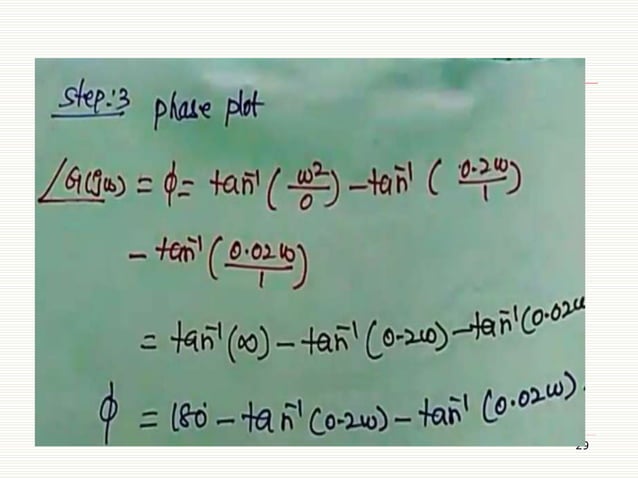 Step:3 phase plot
∠G(jω) = ϕ = tan⁻¹ (ω²/0) – tan⁻¹ (0.2ω/1)
– tan⁻¹ (0.02ω/1)
= tan⁻¹(∞) – tan⁻¹ (0.2ω) – tan⁻¹(0.02ω
ϕ = 180° – tan⁻¹ (0.2ω) – tan⁻¹ (0.02ω).
29